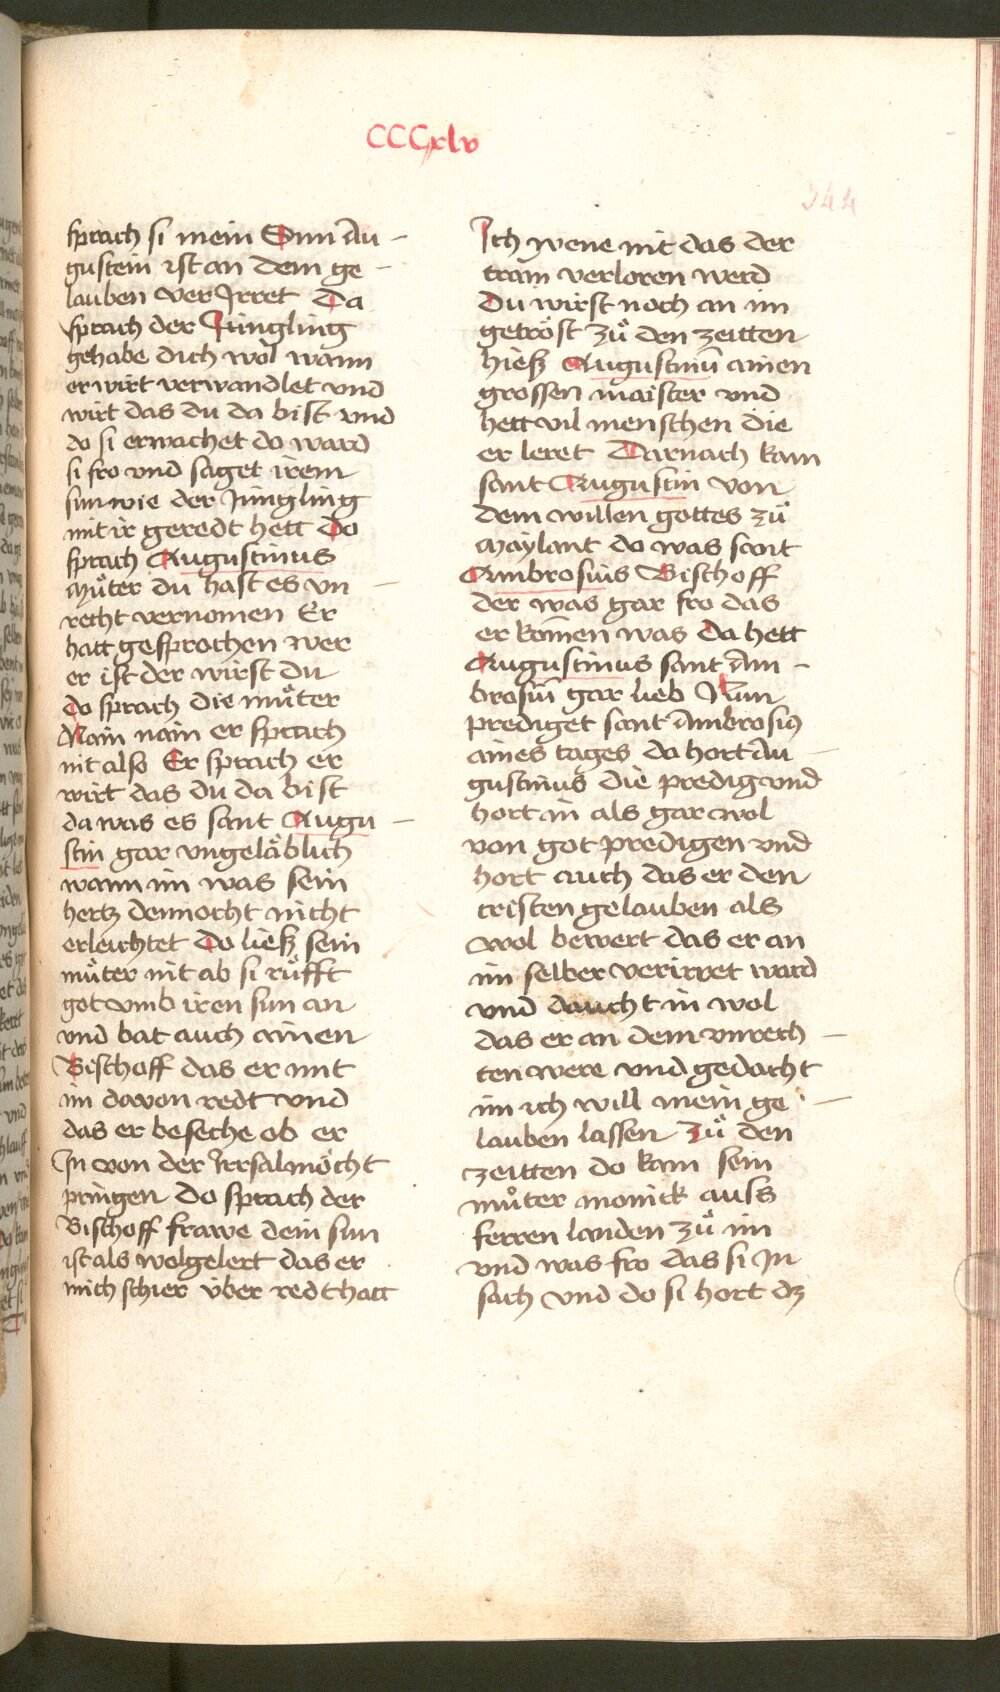 CCCxlv
344
sprach si mein Sun Au -
gustein ist an dem ge -
lauben ver Jrret Da
sprach der Jüngling
gehabe dich wol wann
er wirt verwandlet vnd
wirt das du da bist vnd
do si erwachet do ward
si fro vnd saget irem
sun wie der Jüngling
mit ir geredt hett Do
sprach Augustinus
Mu᷑ter du hast es vn -
recht vernomen Er
hatt gesprochen wer
er ist der wirst du
do sprach die mu᷑ter
Nain nain er sprach
nit also Er sprach er
wirt das du da bist
da was es sant Augu -
stin gar vngeläblich
wann im was sein
hertz dennocht nicht
erleuchtet Do ließ sein
mu᷑ter nit ab si ru᷑fft
got vmb iren sun an
vnd bat auch ainen
Bischoff das er mit
im davon redt vnd
das er beseche ob er
Jn von der Jrrsal möcht
pringen Do sprach der
Bischoff frawe dein sun
ist als wolgelert das er
mich schier über redt hatt
Ich wene nit das der
tram verloren werd
Du wirst noch an im
getröst Zu᷑ den zeitten
hieß Augustinū ainen
grossen maister vnd
hett vil menschen die
er leret Darnach kam
sant Augustin von
dem willen gottes zu᷑
Maylant do was sant
Ambrosius Bischoff
der was gar fro das
er kom̄en was Da hett
Augustinus sant Am -
brosiū gar lieb Nun
prediget sant Ambrosiꝰ
aines tages da hort Au -
gustinus die predig vnd
hort in als gar wol
von got predigen vnd
hort auch das er den
cristen gelauben als
wol bewert das er an
im selber verirret ward
vnd daucht in wol
das er an dem vnrech -
ten were vnd gedacht
im ich will mein ge -
lauben lassen Zu᷑ den
zeitten do kam sein
mu᷑ter monick auß
ferren landen zu᷑ im
vnd was fro das si Jn
sach vnd do si hort dz